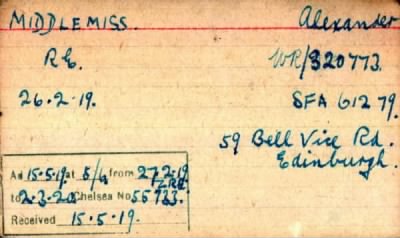 MIDDLEMISS. Alexander
R.E. WR/320773.
26.2.19. SFA 612 79.
59 Bell Vice Rd.
Edinburgh.
Ad 15.5.19 at 5/6 from 27.2.19
to 2.3.20 Chelsea No 55733.
Received 15.5.19.